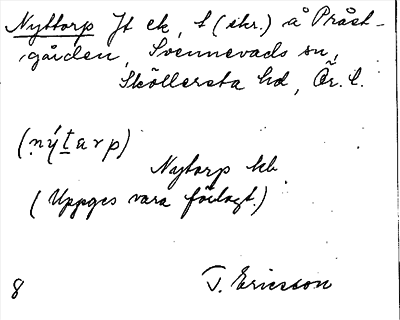 Nyttorp Jt ek, t (skr.) å Präst-
gården, Svennevads sn,
Sköllersta hd, Ör. l.
(nýtarp)
Nytorp kb
(Uppges vara förlagt.)
8 T. Ericsson